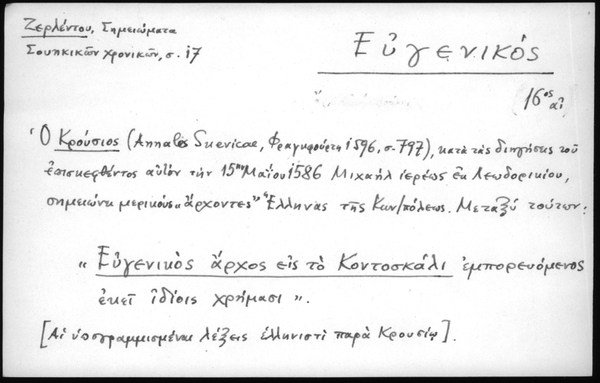 Ζερλέντου, Σημειώματα
Σουηκικῶν χρονικῶν, σ. 17
Εὐγενικός
(16ος αἰ
Ὁ Κρούσιος (Annales Suevicae, Φραγκφούρτη 1596, σ. 797), κατὰ τὰς διηγήσεις τοῦ
ἐπισκεφθέντος αὐτὸν τὴν 15ην Μαΐου 1586 Μιχαὴλ ἱερέως ἐκ Λεωδορικίου,
σημειώνει μερικοὺς „ἄρχοντες" Ἕλληνας τῆς Κων/πόλεως. Μεταξὺ τούτων:
„ Εὐγενικὸς ἄρχος εἰς τὸ Κοντοσκάλι ἐμπορευόμενος
ἐκεῖ ἰδίοις χρήμασι ".
[Αἱ ὑπογραμμισμέναι λέξεις ἑλληνιστὶ παρὰ Κρουσίῳ].